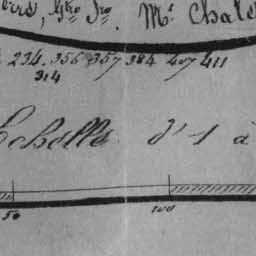 Mr Chale
234. 356 357 384 407 411
314
Echelle d'1 à
50 100